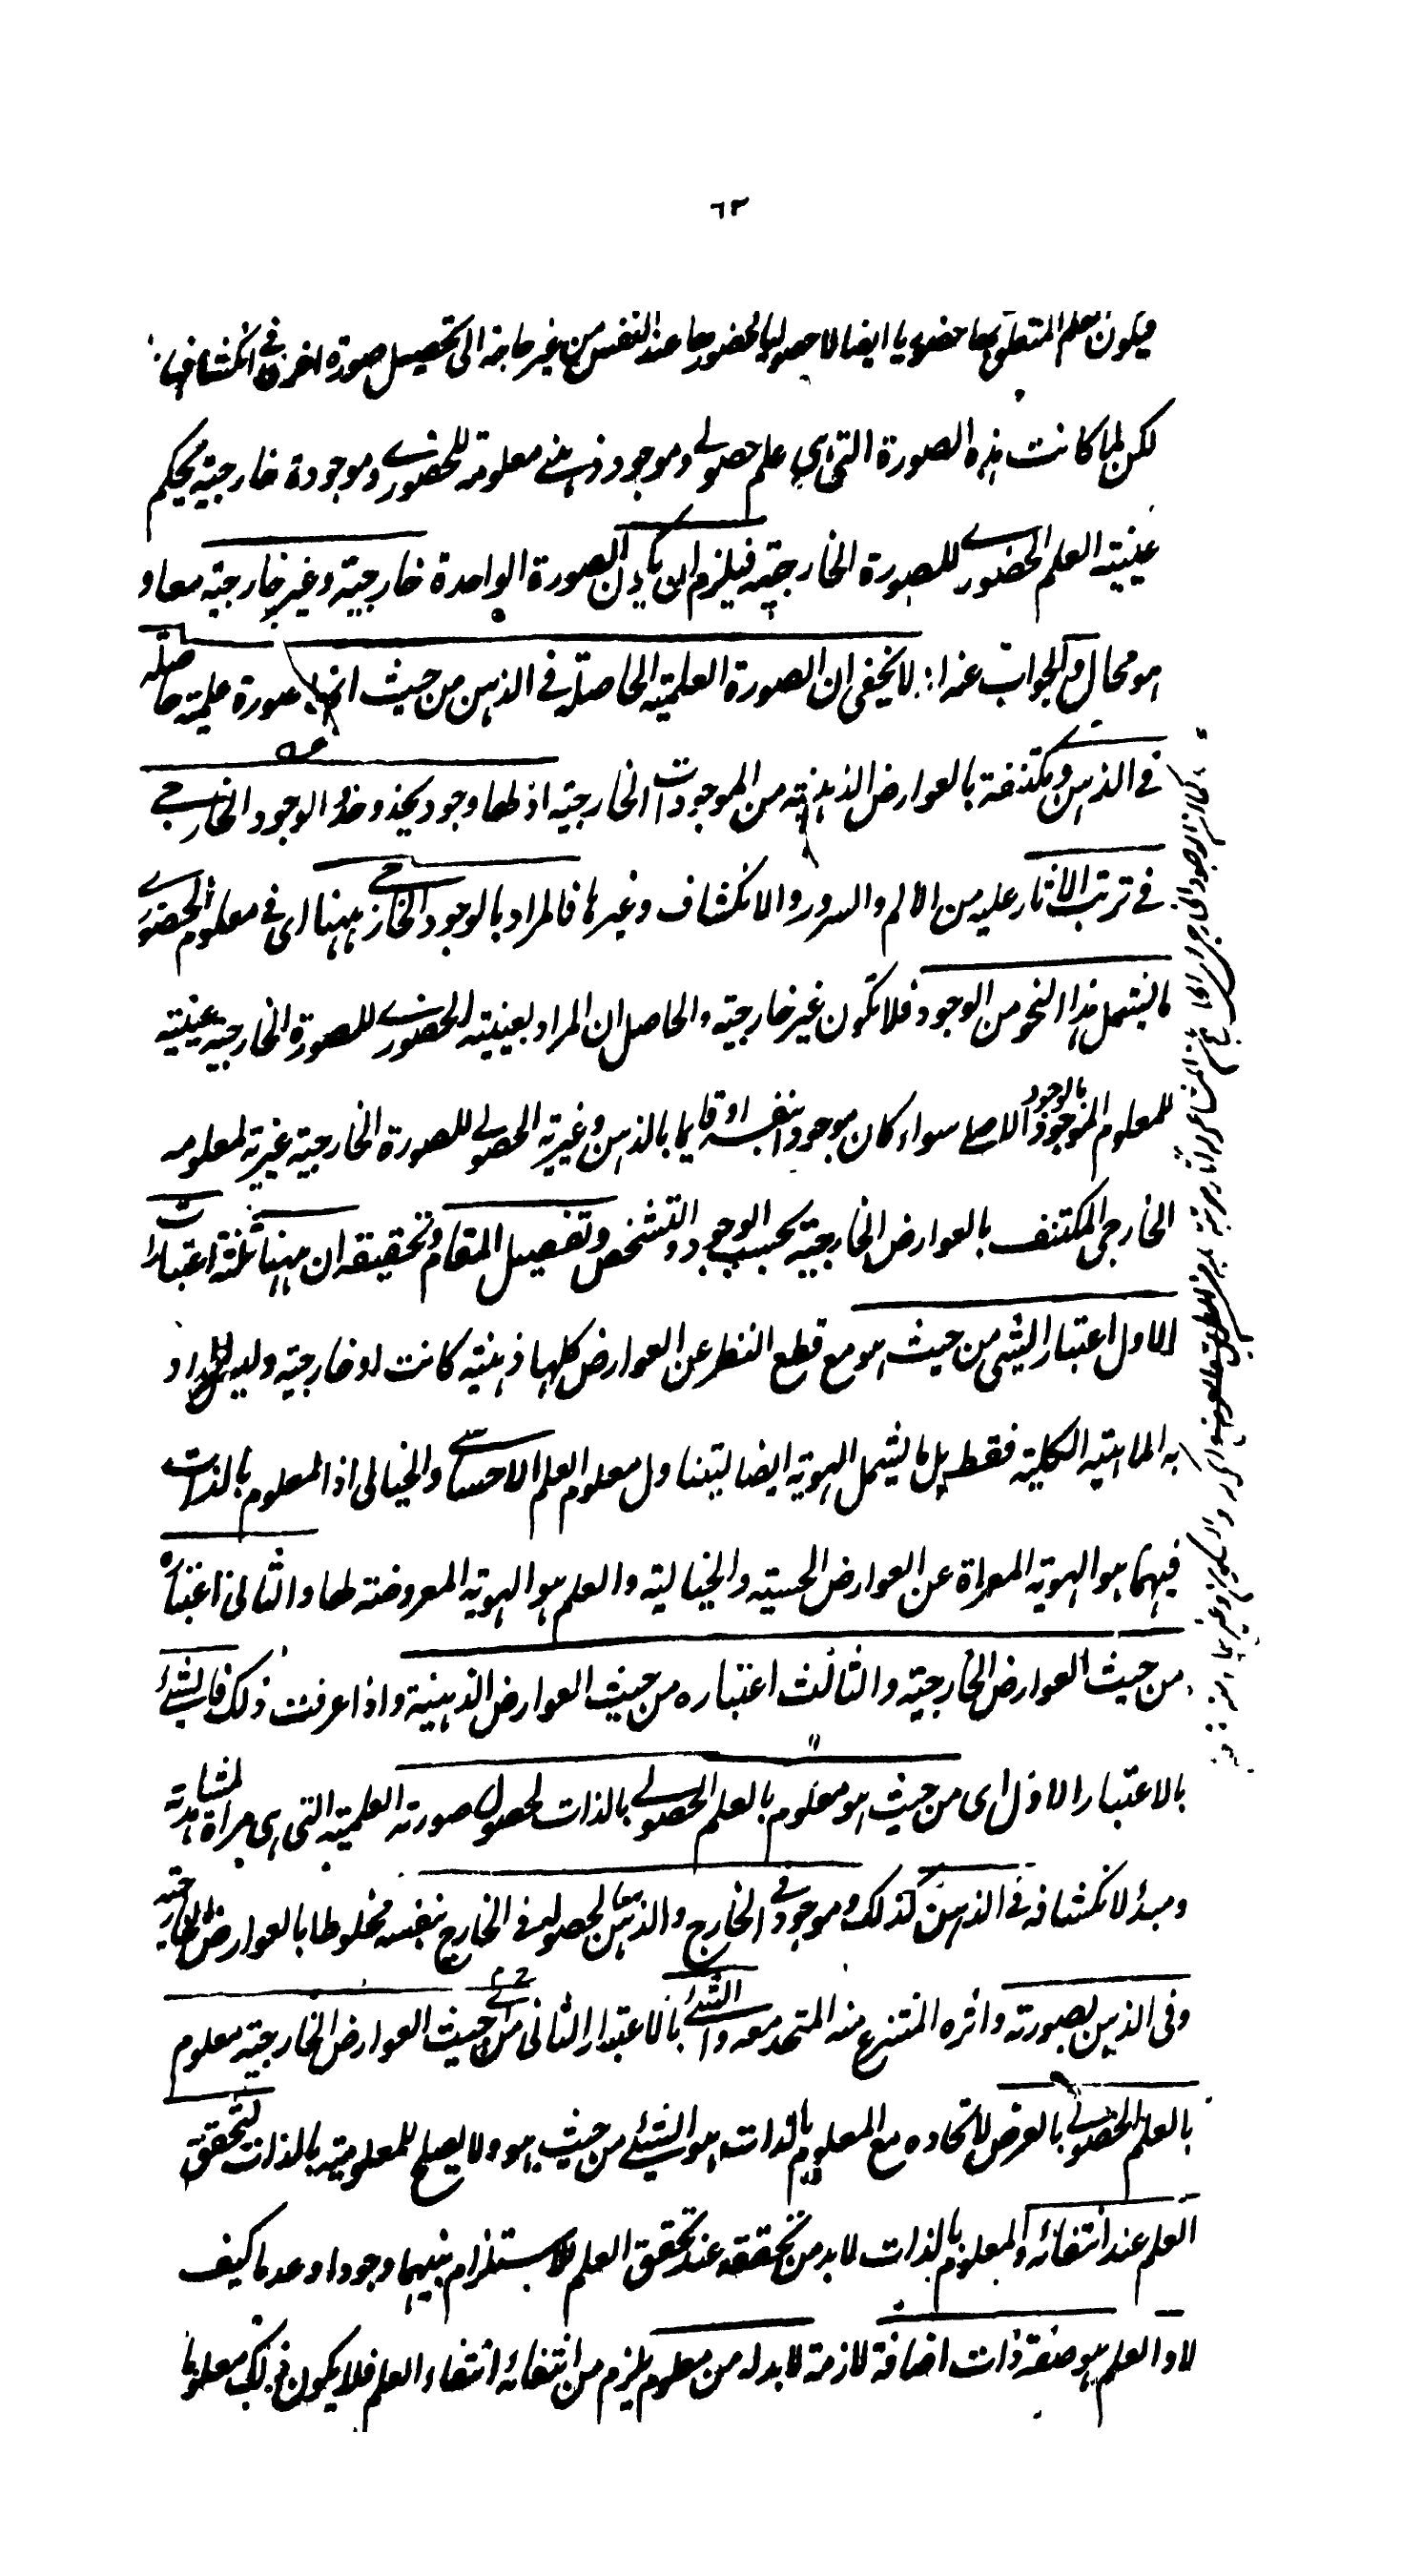 ٦٣
فيكون العلم المتعلق بها حضوريا ايضا لا حصوليا لحضورها عند النفس من غير حاجة الى تحصيل صورة اخرى في انكشافها
لكن لما كانت هذه الصورة التي هي علم حصولي وموجود ذهني معلومة للحضوري وموجودة خارجية بحكم
عينية العلم الحضوري للصورة الخارجية فيلزم ان يكون الصورة الواحدة خارجية وغير خارجية معا و
هو محال والجواب عنه انه لا يخفى ان الصورة العلمية الحاصلة في الذهن من حيث انها صورة علمية حاصلة
في الذهن ومكتنفة بالعوارض الذهنية من الموجودات الخارجية اذ لها وجود يحذو حذو الوجود الخارجي
في ترتب الاثار عليه من الالم والسرور والانكشاف وغيرها فالمراد بالوجود الخارجي ههنا اى في معلوم الحضوري
ما يشمل هذا النحو من الوجود فلا تكون غير خارجية والحاصل ان المراد بعينية الحضوري للصورة الخارجية عينيته
للمعلوم الموجود بالوجود الاصلي سواء كان موجودا بنفسه او قايما بالذهن وغيرية الحصولي للصورة الخارجية غيرية لمعلومه
الخارجي المكتنف بالعوارض الخارجية بحسب الوجود والتشخص وتفصيل المقام وتحقيقه ان ههنا ثلثة اعتبارات
الاول اعتبار الشئ من حيث هو مع قطع النظر عن العوارض كلها ذهنية كانت او خارجية وليس المراد
به الماهية الكلية فقط بل ما يشمل الهوية ايضا ليتناول معلوم العلم الاحساسي والخيالى اذ المعلوم بالذات
فيهما هو الهوية المعراة عن العوارض الحسية والخيالية والعلم هو الهوية المعروضة لها والثانى اعتباره
من حيث العوارض الخارجية والثالث اعتباره من حيث العوارض الذهنية واذا عرفت ذلك فالشئ
بالاعتبار الاول اى من حيث هو معلوم بالعلم الحصولي بالذات لحصول صورته العلمية التى هى مرأة لمشاهدته
ومبدأ لانكشافه في الذهن كذلك وموجود في الخارج والذهن معا لحصوله فى الخارج بنفسه مخلوطا بالعوارض الخارجية
وفى الذهن بصورته واثره المنتزع منه المتحد معه والشئ بالاعتبار الثانى اى من حيث العوارض الخارجية معلوم
بالعلم الحصولي بالعرض لاتحاده مع المعلوم بالذات هو الشئ من حيث هو ولا يصلح للمعلومية بالذات لتحقق
العلم عند انتفائه والمعلوم بالذات لا بد من تحققه عند تحقق العلم للاستلزام بينهما وجودا وعدما كيف
لا والعلم هو صفة ذات اضافة لازمة لا بد له من معلوم يلزم من انتفائه انتفاء العلم فلا يكون ذلك معلوما